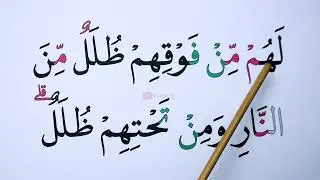 لَهُمْ مِّنْ فَوْقِهِمْ ظُلَلٌ مِّنَ
النَّارِ وَمِنْ تَحْتِهِمْ ظُلَلٌ ۗ